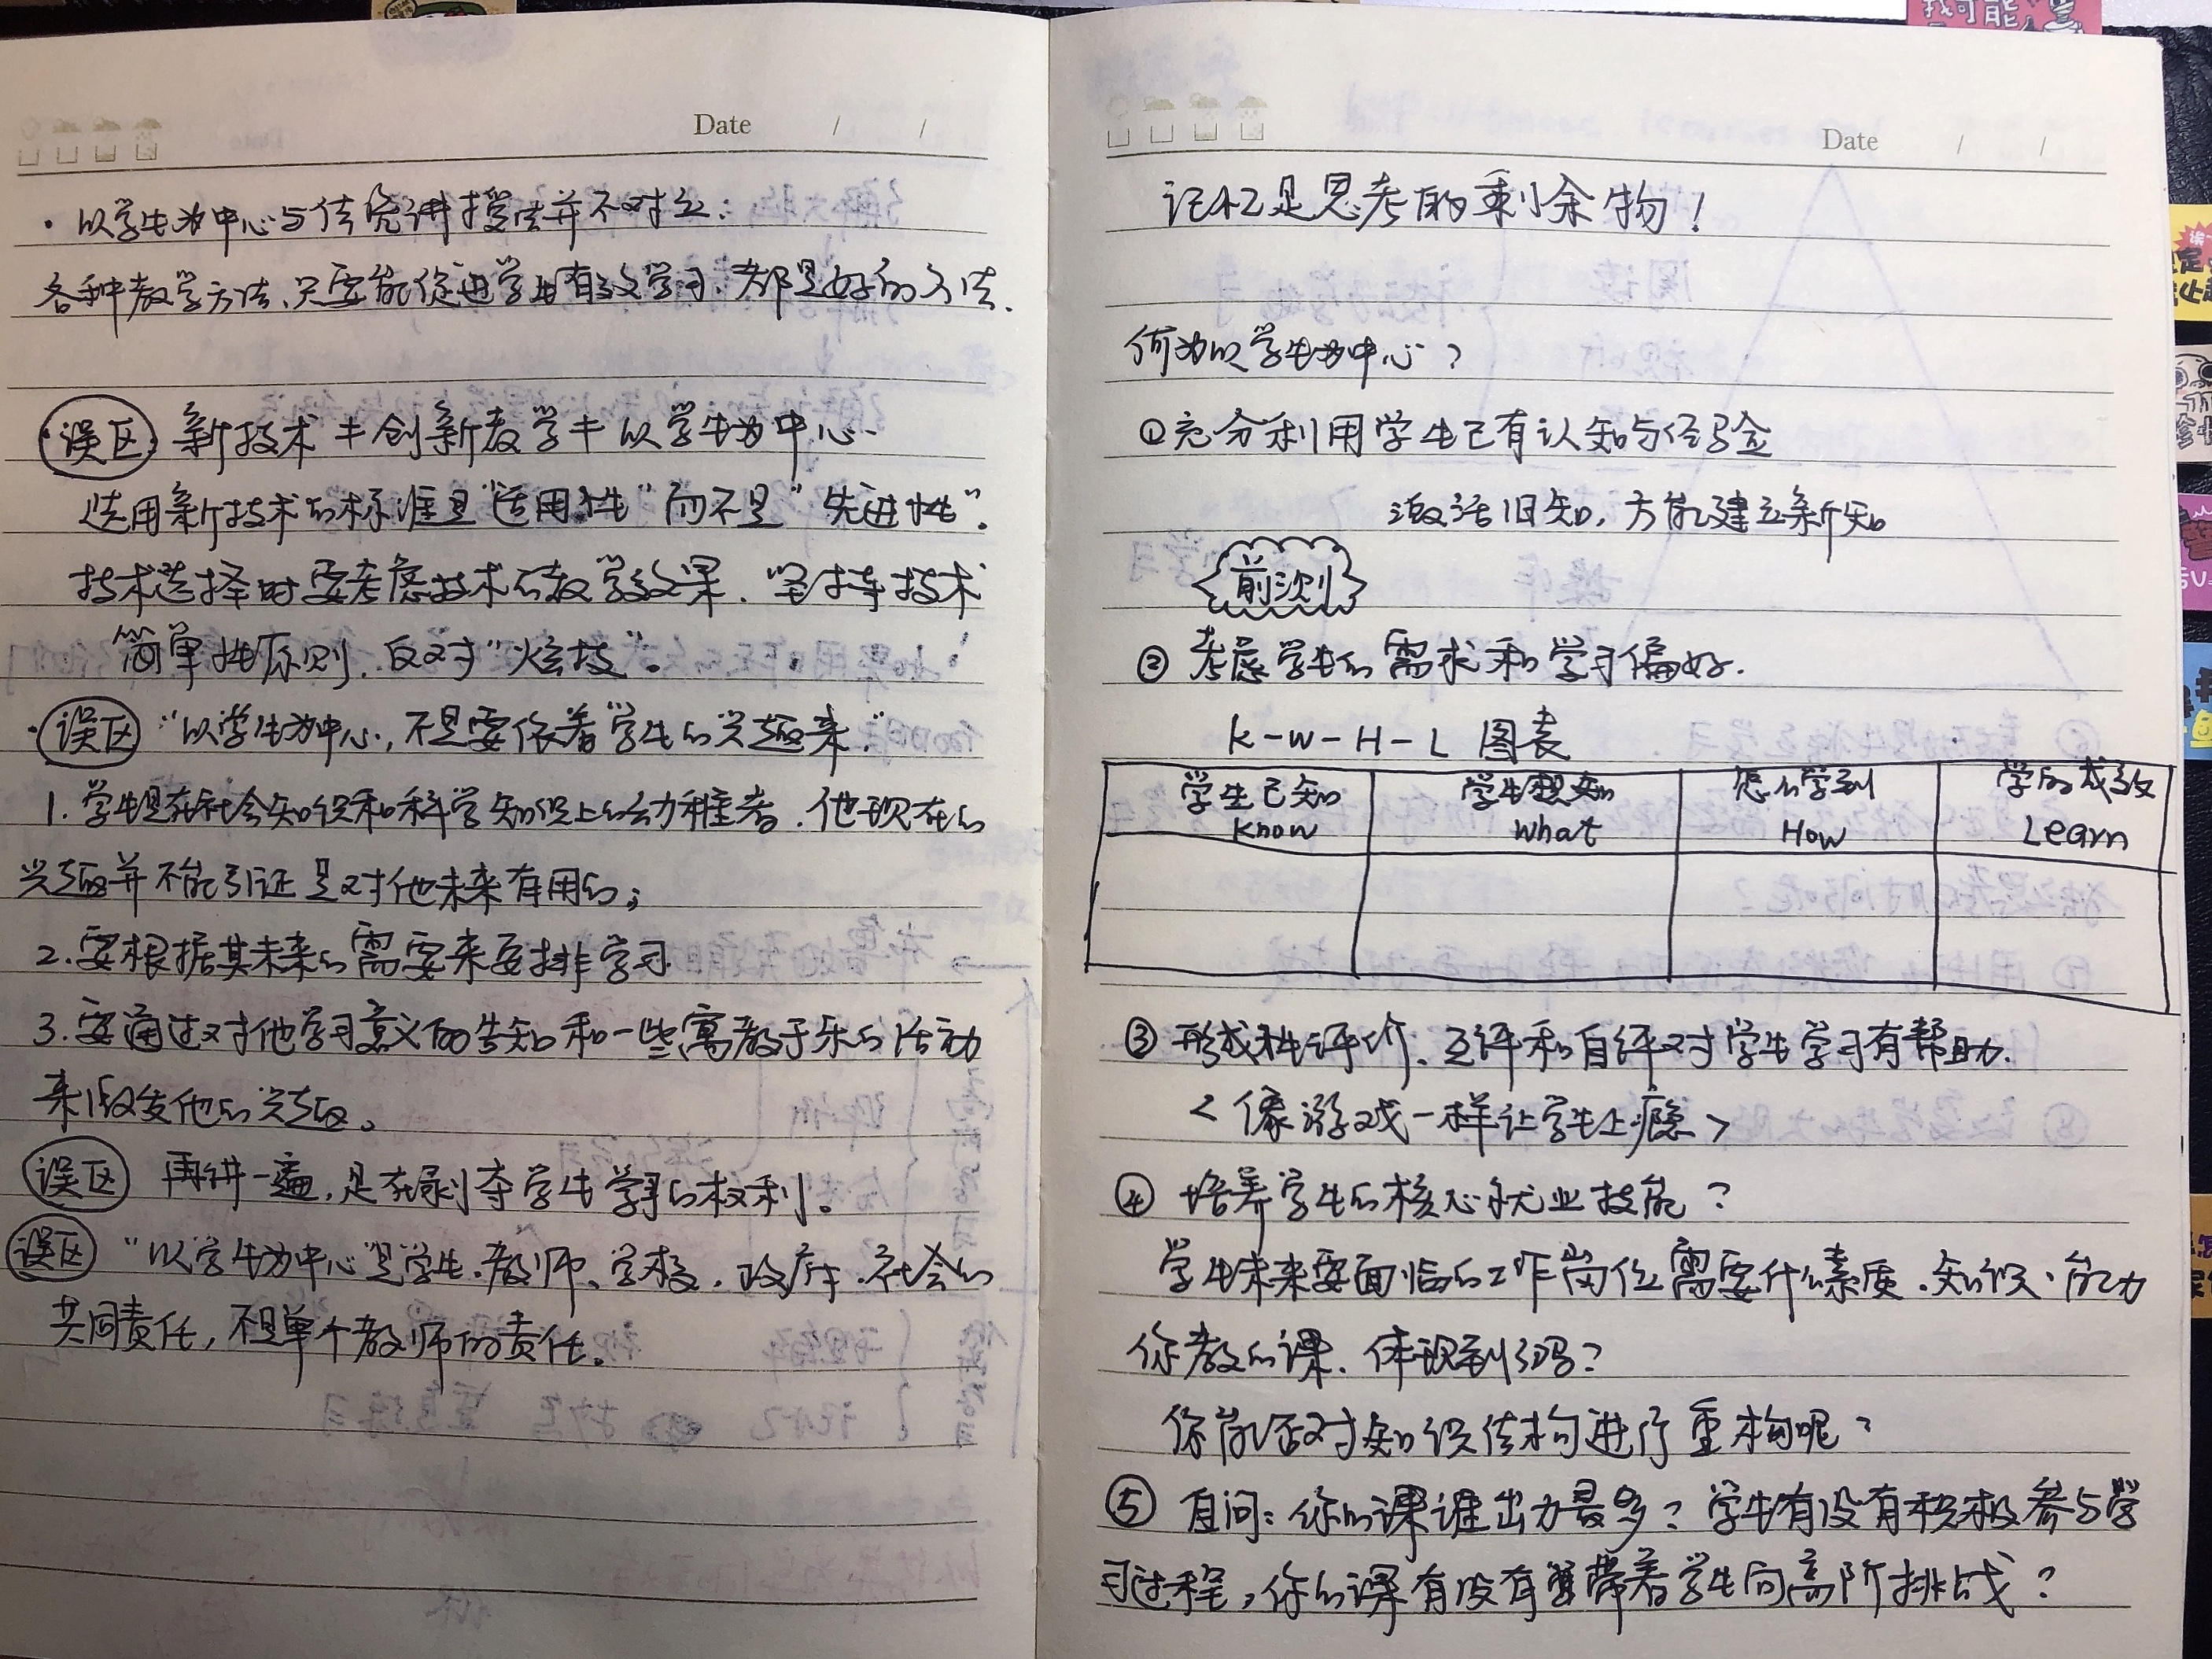 Date / /
· 以学生为中心与传统讲授法并不对立：
各种教学方法、只要能促进学生有效学习、都是好的方法.
误区 新技术≠创新教学≠以学生为中心
选用新技术的标准是"适用性"而不是"先进性"。
技术选择时要考虑技术的教学效果、坚持技术
简单性原则、反对"炫技"。
· 误区 "以学生为中心，不是要依着学生的兴趣来"
1. 学生是在社会知识和科学知识上的幼稚者、他现在的
兴趣并不能引证是对他未来有用的；
2. 要根据其未来的需要来安排学习
3. 要通过对他学习意义的告知和一些寓教于乐的活动
来激发他的兴趣。
误区 再讲一遍，是在剥夺学生学习的权利。
误区 "以学生为中心"是学生、教师、学校、政府、社会的
共同责任，不是单个教师的责任。
Date / /
记忆是思考的剩余物！
何为以学生为中心？
①充分利用学生已有认知与经验
激活旧知，方能建立新知
前测
② 考虑学生的需求和学习偏好.
K-W-H-L 图表
学生已知 学生想知 怎么学到 学的成效
Know What How Learn
③ 形成性评价、互评和自评对学生学习有帮助.
<像游戏一样让学生上瘾>
④ 培养学生的核心就业技能？
学生未来要面临的工作岗位需要什么素质、知识、能力
你教的课、体现到了吗？
你能否对知识结构进行重构呢？
⑤ 自问：你的课谁出力最多？学生有没有积极参与学
习过程，你的课有没有带着学生向高阶挑战？
找可能